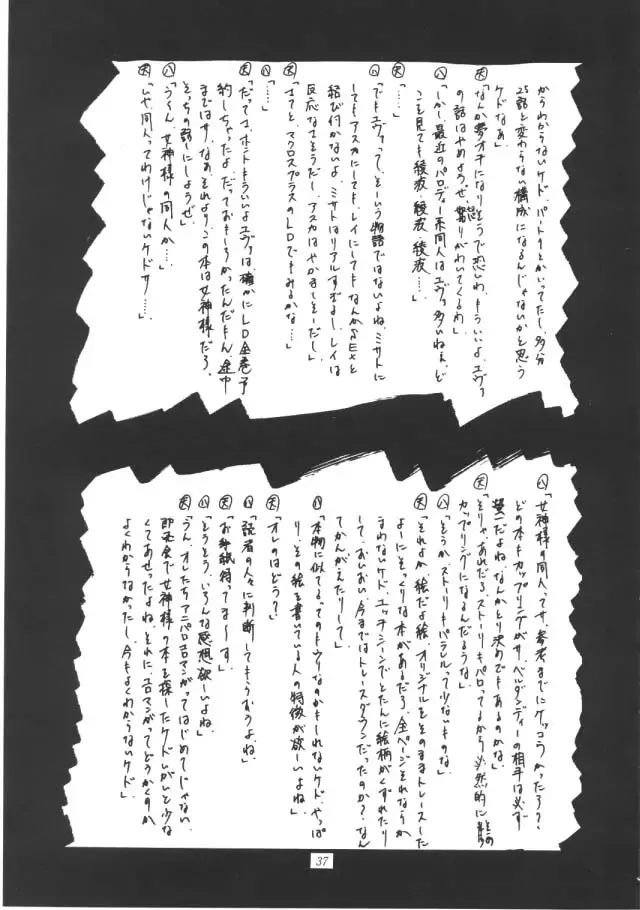 からわからないケド、パート1とかいってたし、多分
25話と変わらない構成になるんじゃないかと思う
ケドなあ」
「なんか夢オチになりそうで恐いわ、もういいよ、エヴァ
の話はやめようぜ、怒りがわいてくるわ」
㊇「しかし最近のパロディー系同人はエヴァ多いねぇ、ど
こを見ても綾波・綾波・綾波……」
「……」
㊇「でもエヴァって、そーいう物語ではないよね、ミサトに
してもアスカにしてもレイにしてもなんかSEXと
結び付かないよ、ミサトはリアルすぎるし、レイは
反応なさそうだし、アスカはやかましそーだし」
「さてと、マクロスプラスのLDでもみるかな……」
㊇「……」
「だってさ、ホントもういいよエヴァは、確かにLD全巻予
約しちゃったよ、だっておもしろかったんだもん、途中
まではサ、なあ、それよりこの本は女神様だろ、
そっちの話にしようぜ」
㊇「うーん、女神様の同人か……」
「いや同人ってわけじゃないケドサ……」
㊇「女神様の同人ってサ、参考までにケッコウかったろ？？
どの本もカップリングがサ、ベルダンディーの相手は必ず
螢一だよね、なんかとり決めでもあるのかな」
「そりゃあれだろ、ストーリーもパロってるから必然的に
カップリングになるんだろうな」
㊇「そうか、ストーリーもパラレルって少ないものな」
「それよか絵だよ絵、オリジナルをそのままトレースした
よーにそっくりな本があるだろ、全ページそれならか
まわないケド、エッチシーンでとたんに絵柄がくずれたり
して、おいおい、今まではトレースダウンだったのか？なん
てかんがえたりして」
㊇「本物に似てるってのもウリなのかもしれないケド、やっぱ
り、その絵を書いている人の特徴が欲しいよね」
「オレのはどう？」
㊇「読者の人々に判断してもらおうよね」
「お手紙待ってま〜す」
㊇「そうそう、いろんな感想欲しいよね」
「うん、オレたちアニパロエロマンガってはじめてじゃない、
即売会で女神様の本を探したケドいがいと少な
くてあせったよね、それにエロマンガってどうかくのか
よくわからなかったし、今もよくわからないケド」
37